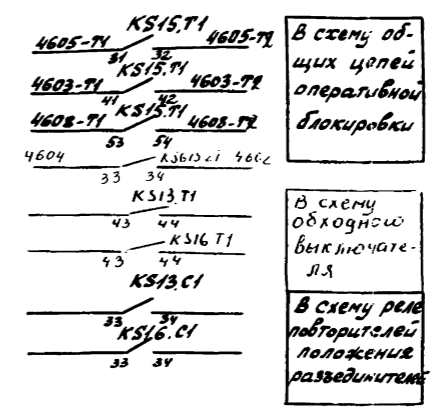 KS15.T1
4605-T1 31 32 4605-T2
KS15.T1
4603-T1 41 42 4603-T2
KS15.T1
4608-T1 53 54 4608-T2
4604 33 34
KS13.T1
43 44
KS16 T1
43 44
KS13.C1
33 34
KS16.C1
33 34
В схему об-
щих цепей
оперативной
блокировки
В схему
обходного
выключате-
ля
В схему реле
повторителей
положения
разъединителей